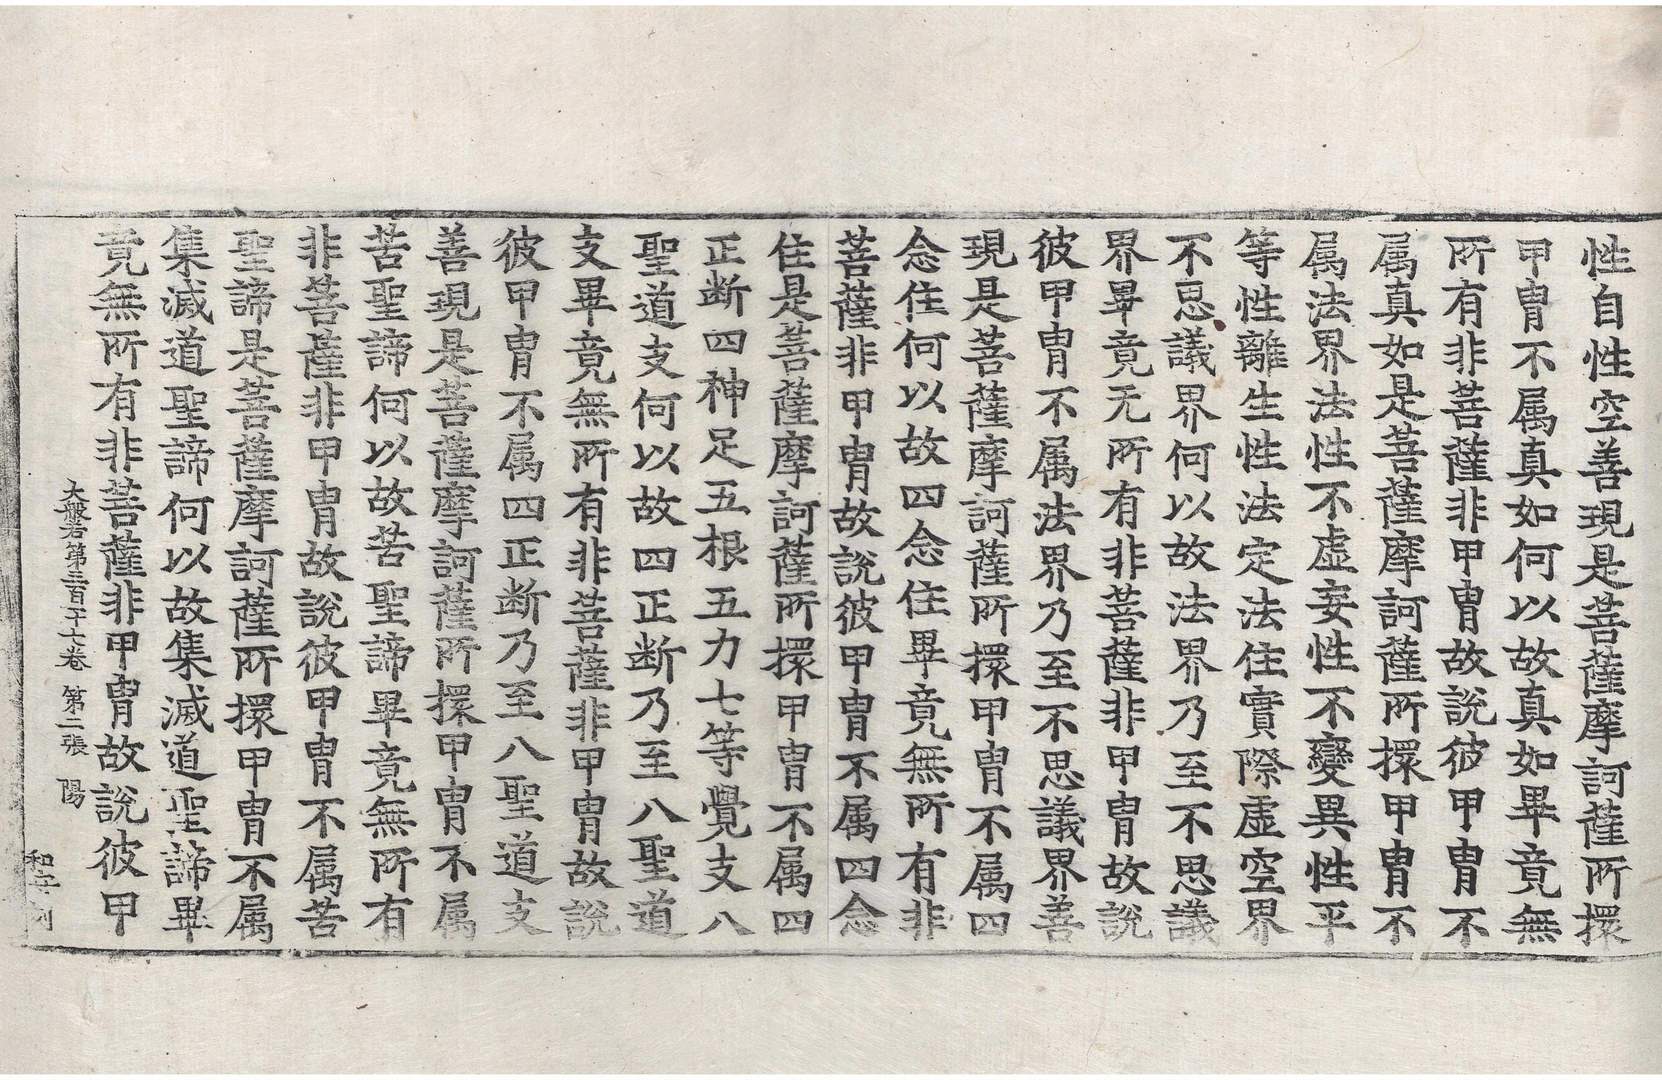 性自性空善現是菩薩摩訶薩所擐
甲冑不属真如何以故真如畢竟無
所有非菩薩非甲冑故說彼甲冑不
属真如是菩薩摩訶薩所擐甲冑不
属法界法性不虛妄性不變異性平
等性離生性法定法住實際虛空界
不思議界何以故法界乃至不思議
界畢竟无所有非菩薩非甲冑故說
彼甲冑不属法界乃至不思議界善
現是菩薩摩訶薩所擐甲冑不属四
念住何以故四念住畢竟無所有非
菩薩非甲冑故說彼甲冑不属四念
住是菩薩摩訶薩所擐甲冑不属四
正断四神足五根五力七等覺支八
聖道支何以故四正断乃至八聖道
支畢竟無所有非菩薩非甲冑故說
彼甲冑不属四正断乃至八聖道支
善現是菩薩摩訶薩所擐甲冑不属
苦聖諦何以故苦聖諦畢竟無所有
非菩薩非甲冑故說彼甲冑不属苦
聖諦是菩薩摩訶薩所擐甲冑不属
集滅道聖諦何以故集滅道聖諦畢
竟無所有非菩薩非甲冑故說彼甲
大般若第三百十六卷 第二張 陽